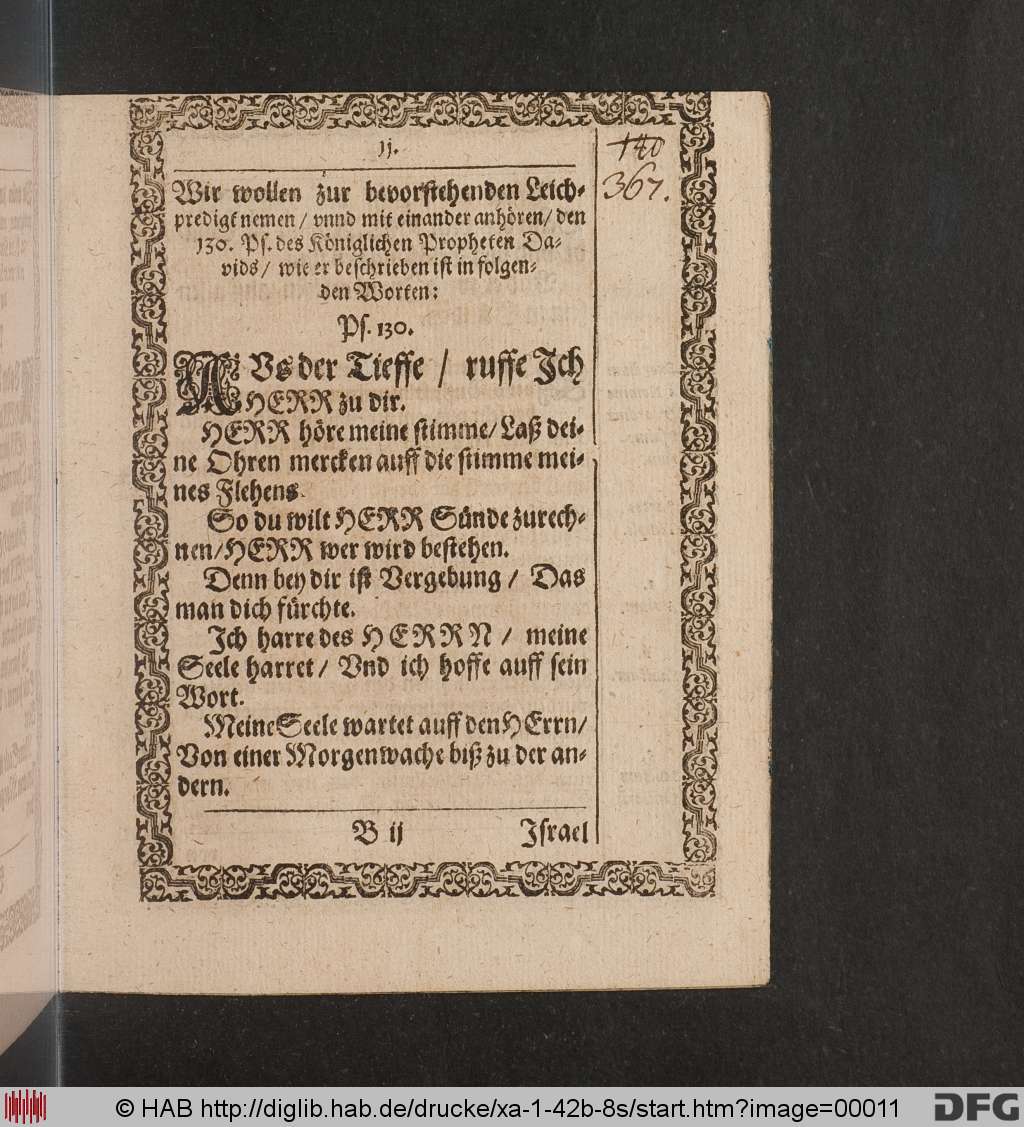 11.
140
367.
Wir wollen zur bevorstehenden Leich-
predigt nemen / vnnd mit einander anhören / den
130. Ps. des Königlichen Propheten Da-
vids / wie er beschrieben ist in folgen-
den Worten:
Ps. 130.
AVs der Tieffe / ruffe Jch
HERR zu dir.
HERR höre meine stimme / Laß dei-
ne Ohren mercken auff die stimme mei-
nes Flehens.
So du wilt HERR Sünde zurech-
nen / HERR wer wird bestehen.
Denn bey dir ist Vergebung / Das
man dich fürchte.
Jch harre des HERRN / meine
Seele harret / Vnd ich hoffe auff sein
Wort.
Meine Seele wartet auff den HErrn /
Von einer Morgenwache biß zu der an-
dern.
B ij Jsrael
© HAB http://diglib.hab.de/drucke/xa-1-42b-8s/start.htm?image=00011
DFG